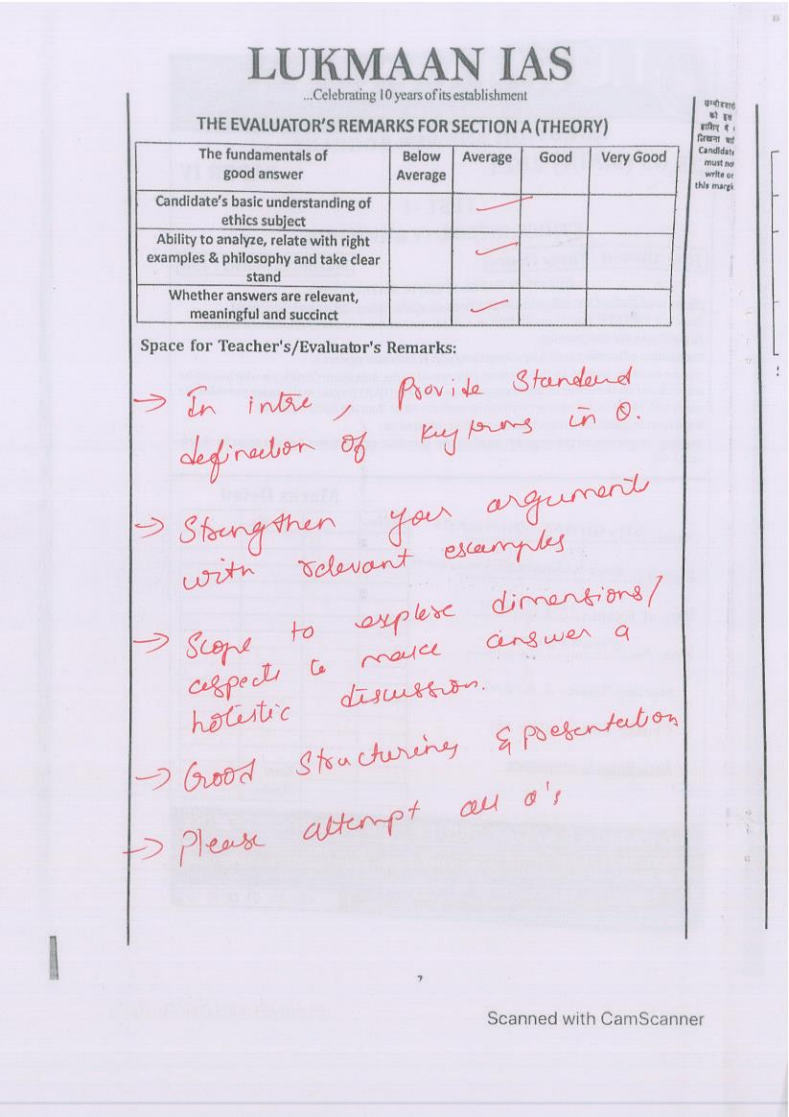 LUKMAAN IAS
...Celebrating 10 years of its establishment
THE EVALUATOR'S REMARKS FOR SECTION A (THEORY)
The fundamentals of good answer | Below Average | Average | Good | Very Good
Candidate's basic understanding of ethics subject
Ability to analyze, relate with right examples & philosophy and take clear stand
Whether answers are relevant, meaningful and succinct
Space for Teacher's/Evaluator's Remarks:
→ In intro, Provide Standard
definection of key terms in Q.
→ Strengthen your argument
with relevant examples
→ Scope to explore dimensions/
aspects to make answer a
holistic discussion.
→ Good Structuring & presentation
→ Please attempt all Q's
को इस
Candidate
must not
write on
this margi
Scanned with CamScanner